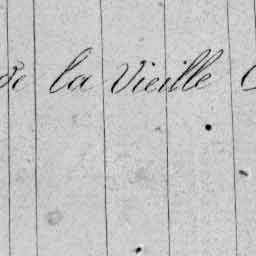 de la Vieille